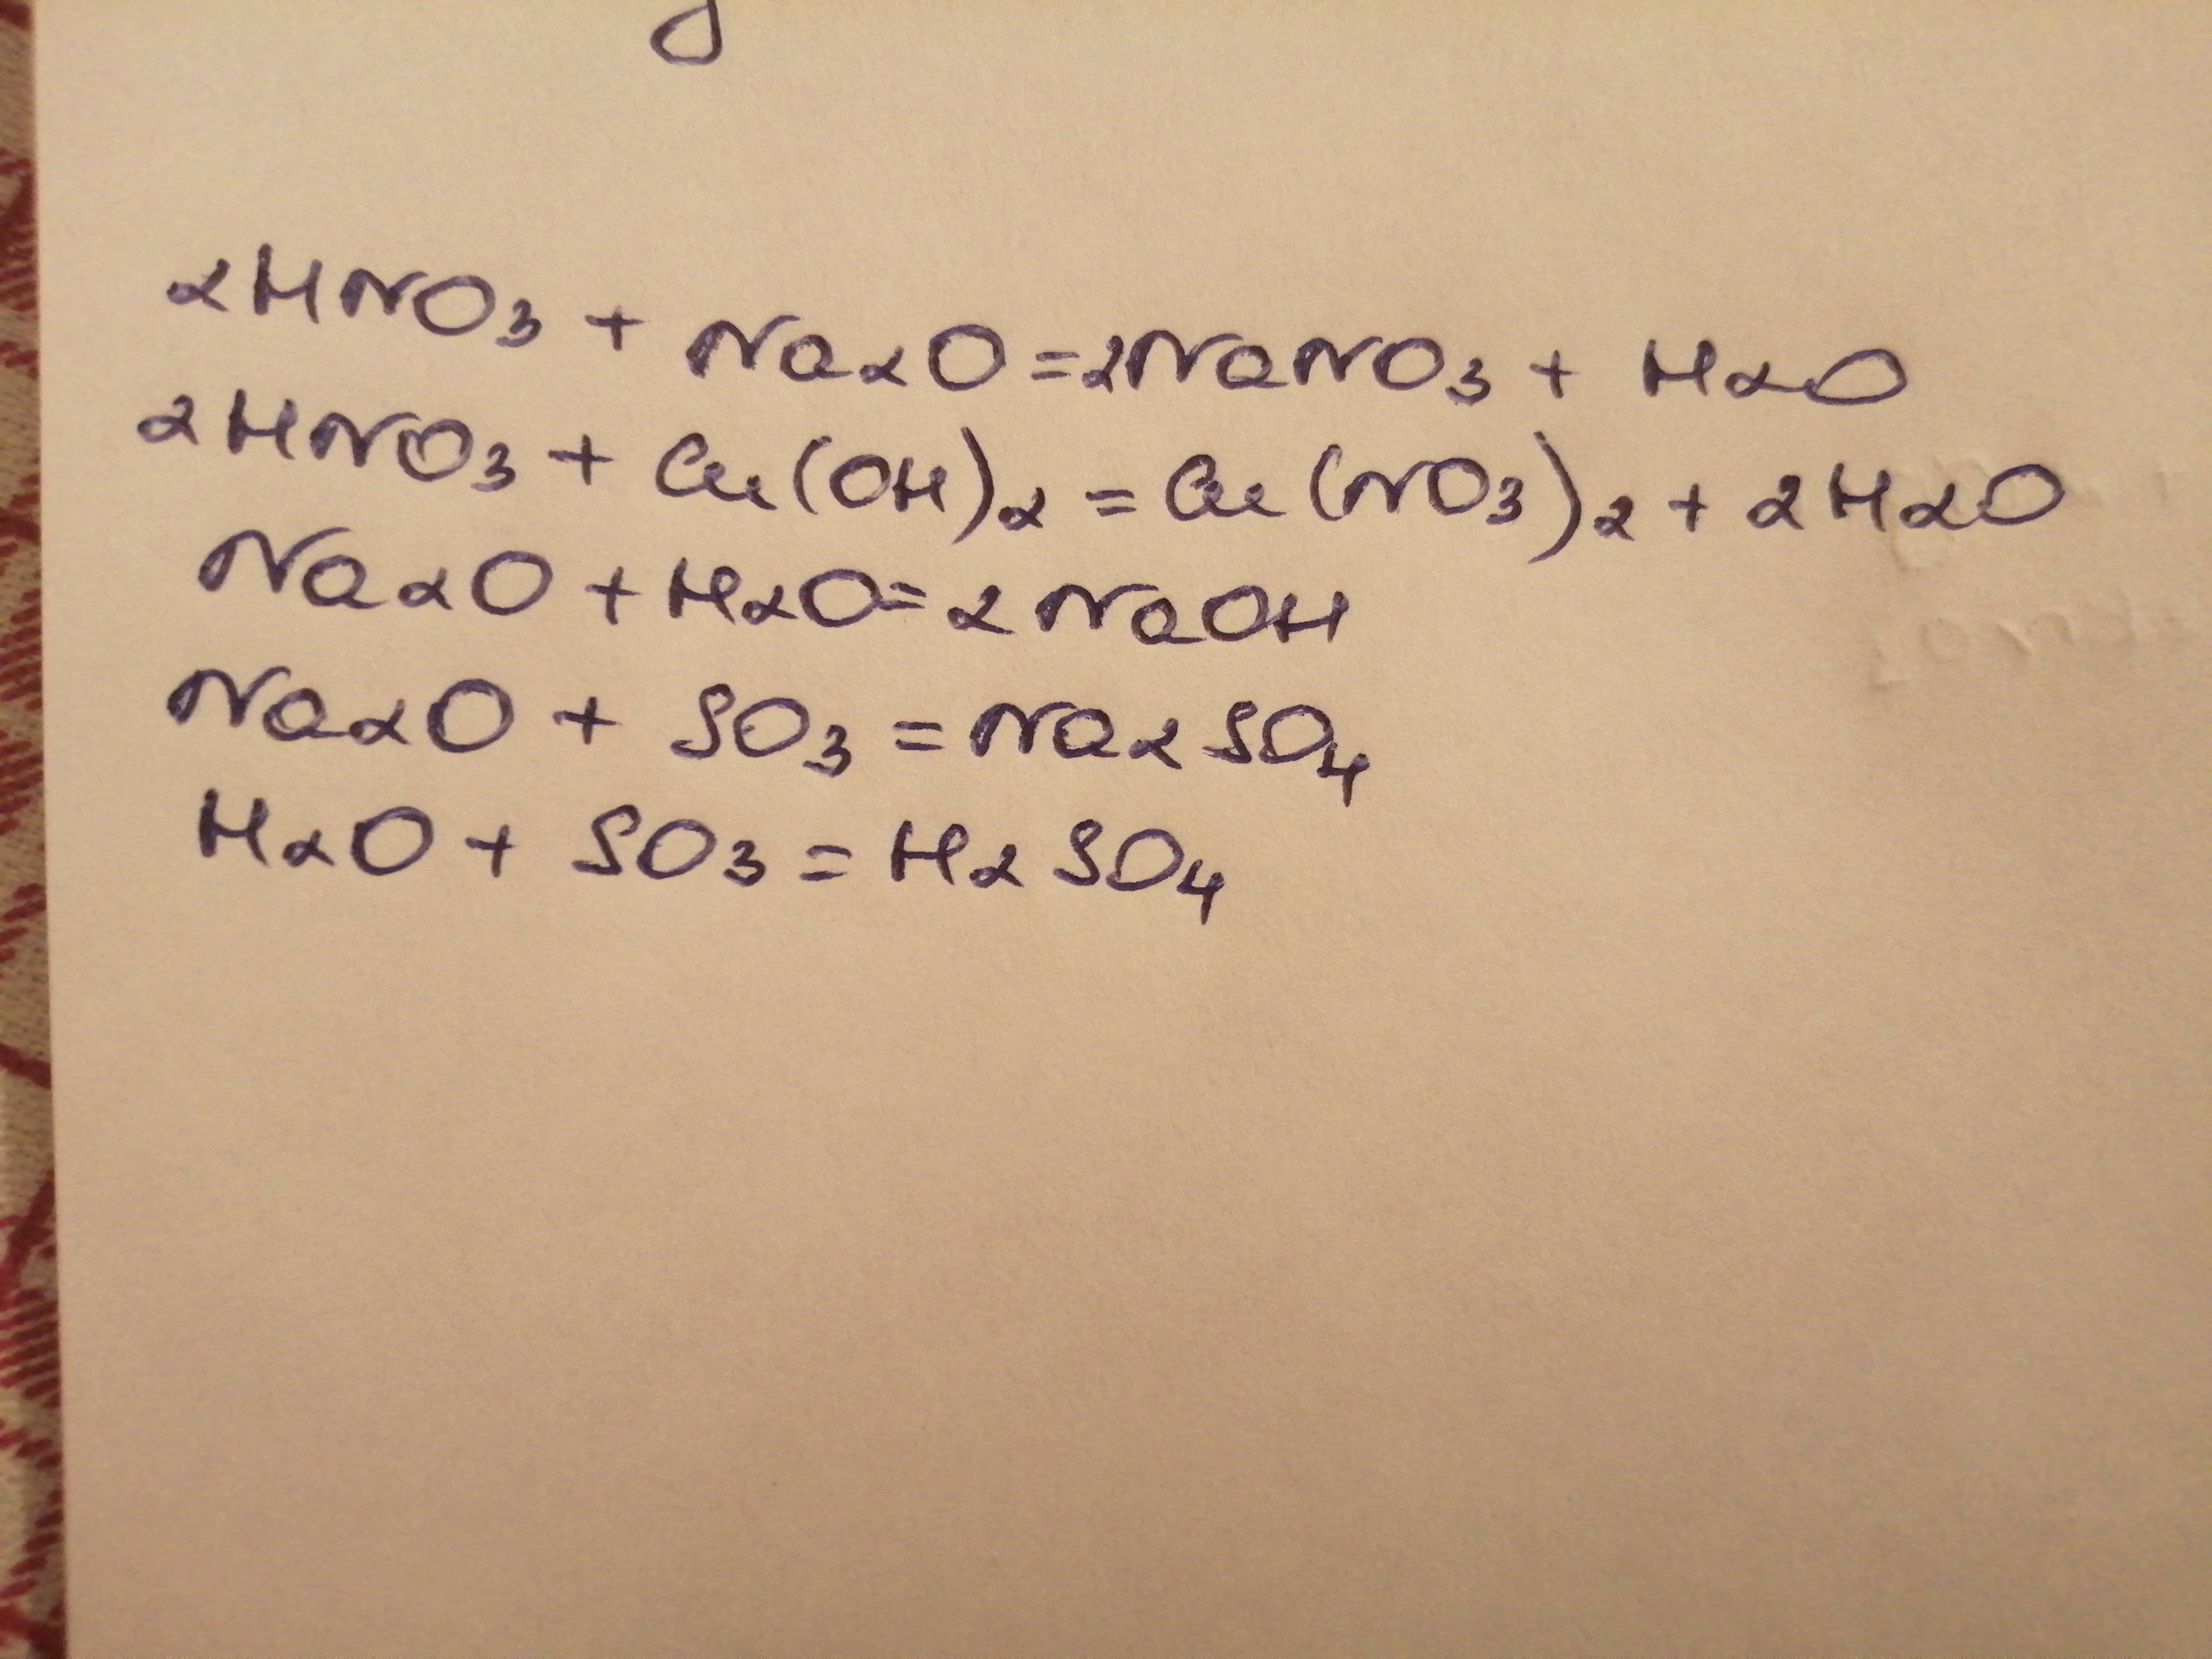 2HNO3 + Na2O = 2NaNO3 + H2O
2HNO3 + Cu(OH)2 = Cu(NO3)2 + 2H2O
Na2O + H2O = 2NaOH
Na2O + SO3 = Na2SO4
H2O + SO3 = H2SO4